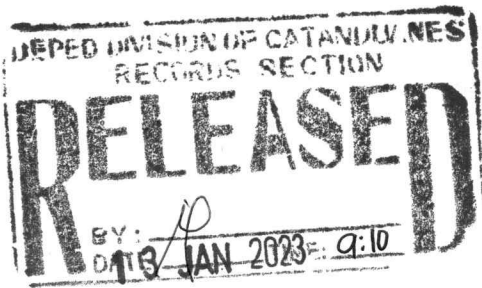 DEPED DIVISION OF CATANDUANES
RECORDS SECTION
RELEASED
BY:
DATE 13 JAN 2023 E: 9:10